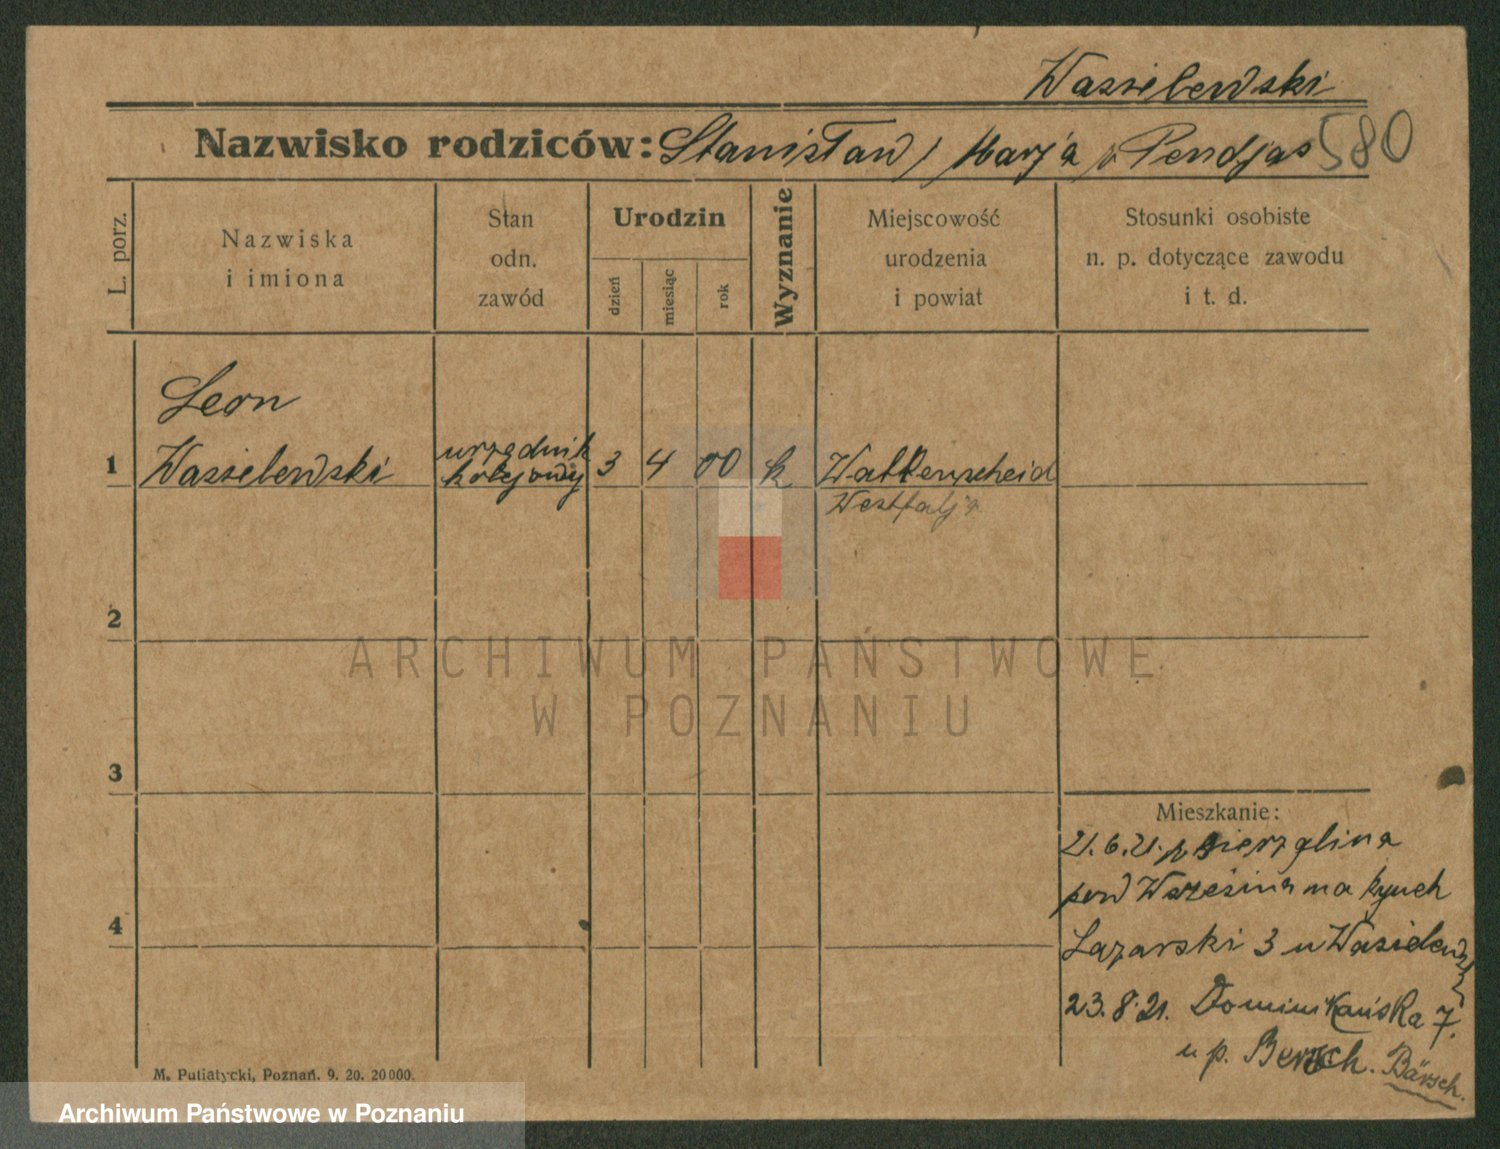 Wasielewski
Nazwisko rodziców: Stanisław / Marja z Pendjas 580
L. porz.
Nazwiska
i imiona
Stan
odn.
zawód
Urodzin
dzień
miesiąc
rok
Wyznanie
Miejscowość
urodzenia
i powiat
Stosunki osobiste
n. p. dotyczące zawodu
i t. d.
Leon
1 Wasielewski urzędnik kolejowy 3 4 00 k Wattenscheid
Westfalja
2
ARCHIWUM PAŃSTWOWE
W POZNANIU
3
Mieszkanie:
21.6.21. z
pow Września na Rynek
4
Lazarski 3 u Wasielewski
23.8.21. Dominikańska 7.
u p. Bersch. Bärsch.
M. Putiatycki, Poznań. 9. 20. 20000.
Archiwum Państwowe w Poznaniu